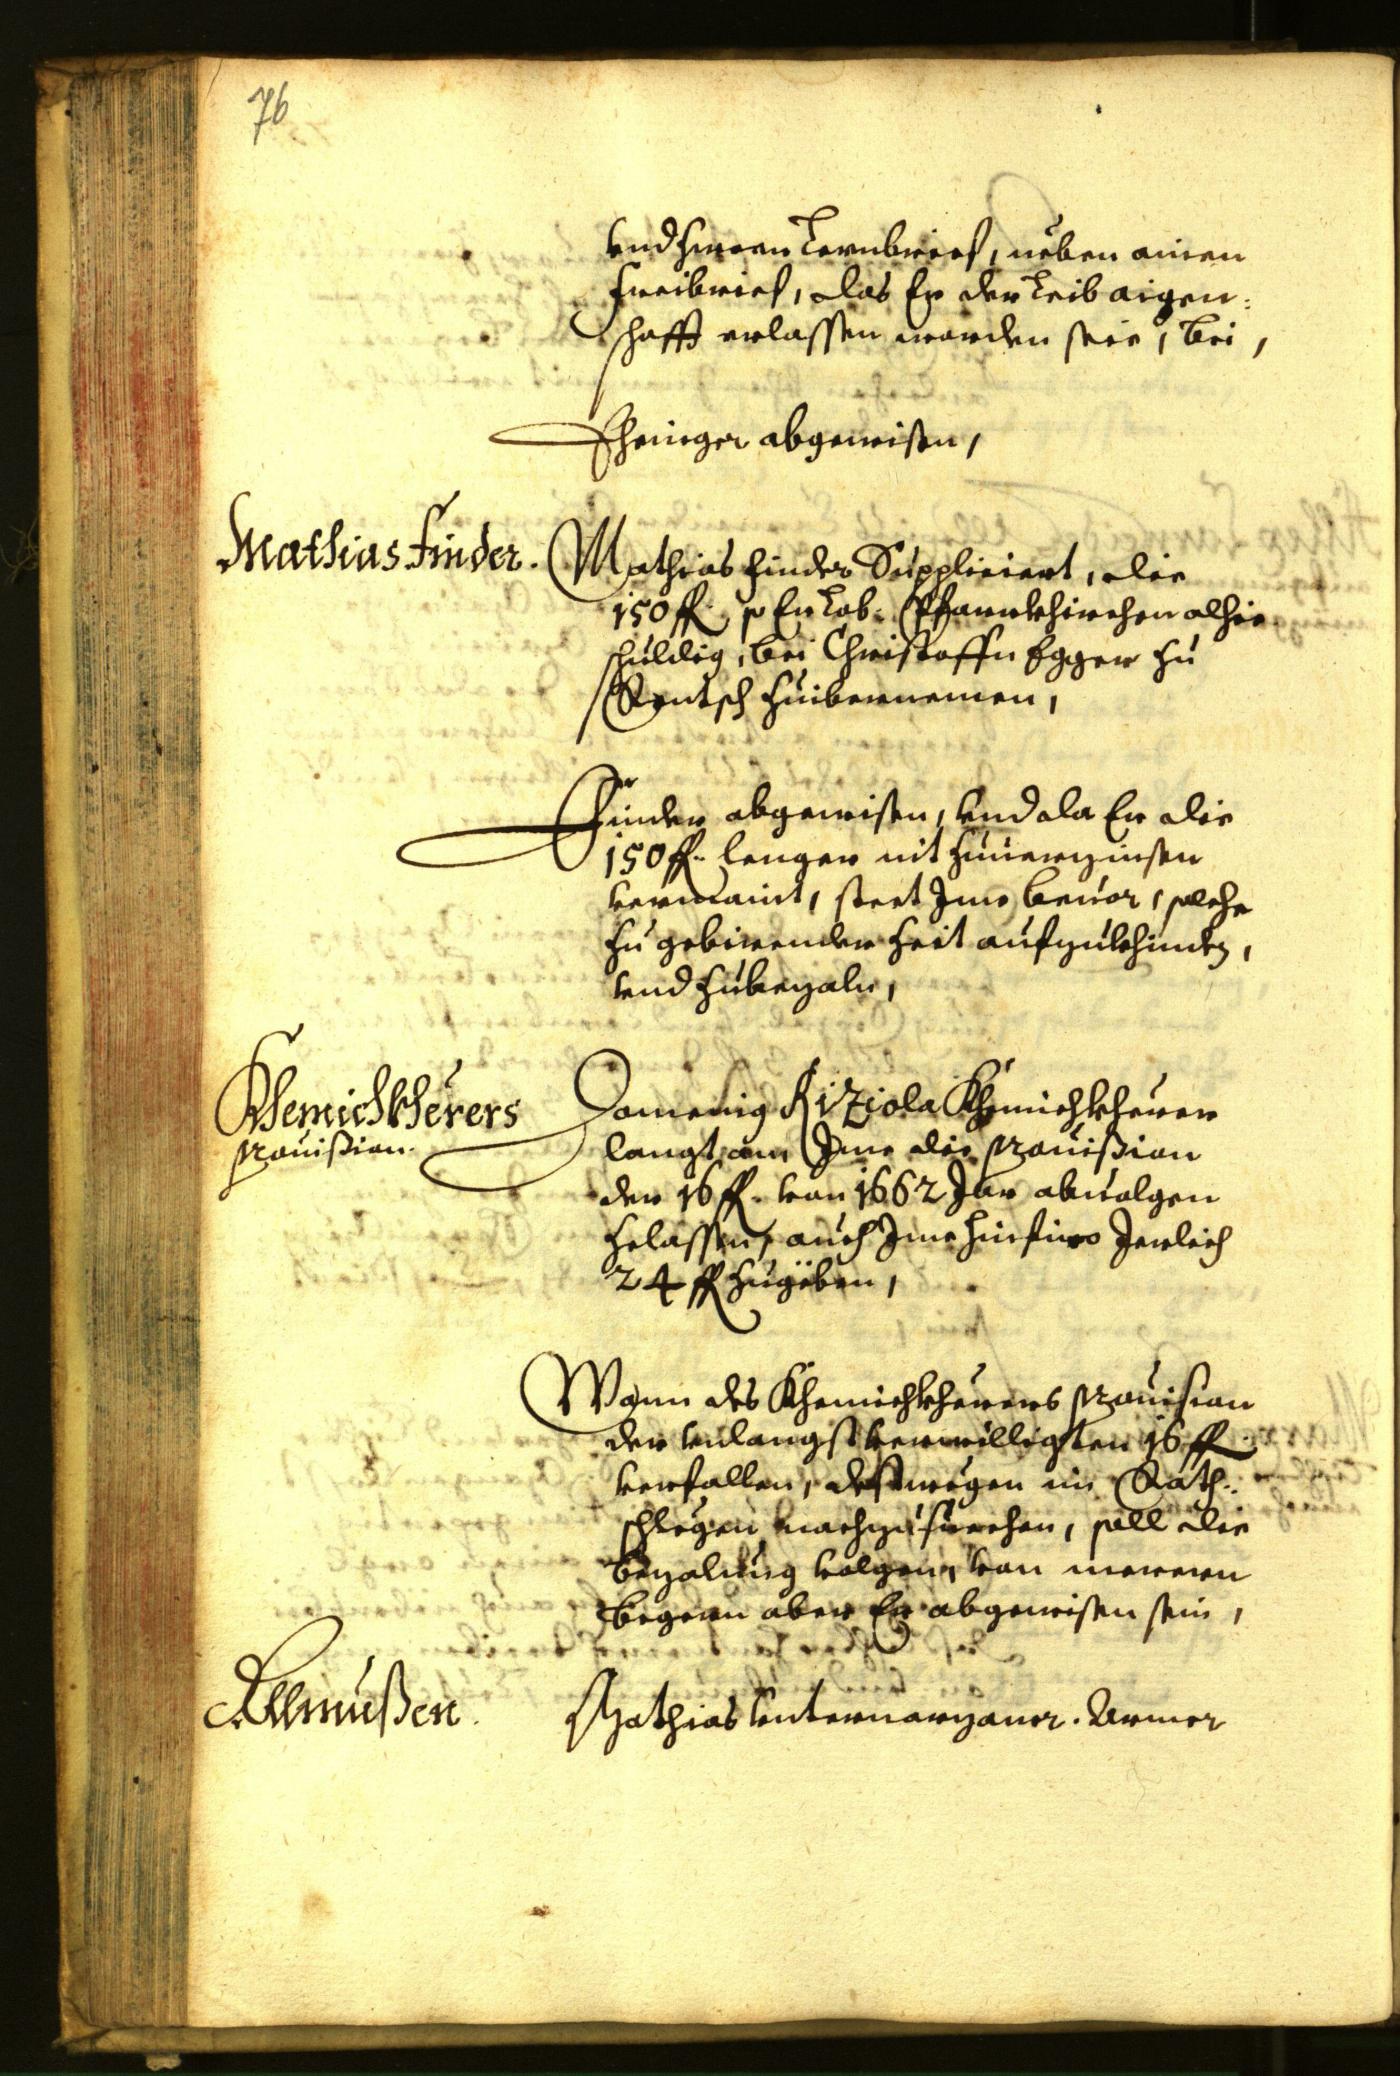 76
vnd seinen Lernbrief, neben ainen
Freibrief, das Er der Leib aigen:
schafft erlassen worden seie, bei,
abgewisen,
Mathias Finder.
Mathias Finder Suppliciert, die
150 fl. so Er Lob: Pfarrkhirchen alhie
schuldig, bei Christoffn Egger zu
Rentsch zuibernemen,
Finder abgewisen, vnd da Er die
150 fl. lenger nit zuuerzinsen
vermaint, steet Ime beuor, solche
zu gebirender Zeit aufzukhinden,
vnd zubezaln,
Khemichkherers
prouision.
Domenig Riziola Khemichkherer
langt an, Ime die prouision
der 16 fl. von 1662 Jar abuolgen
zelassen, auch Ime hinfiro Jerlich
24 fl zugeben,
Wann des Khemichkherers prouision
der vnlangst verwilligten 16 fl.
verfallen, destwegen im Rath:
schlegen nachzusuechen, soll die
bezalung volgen, von merern
begern aber Er abgewisen sein,
Allmußen.
Mathias Vntermarzaner. Armer